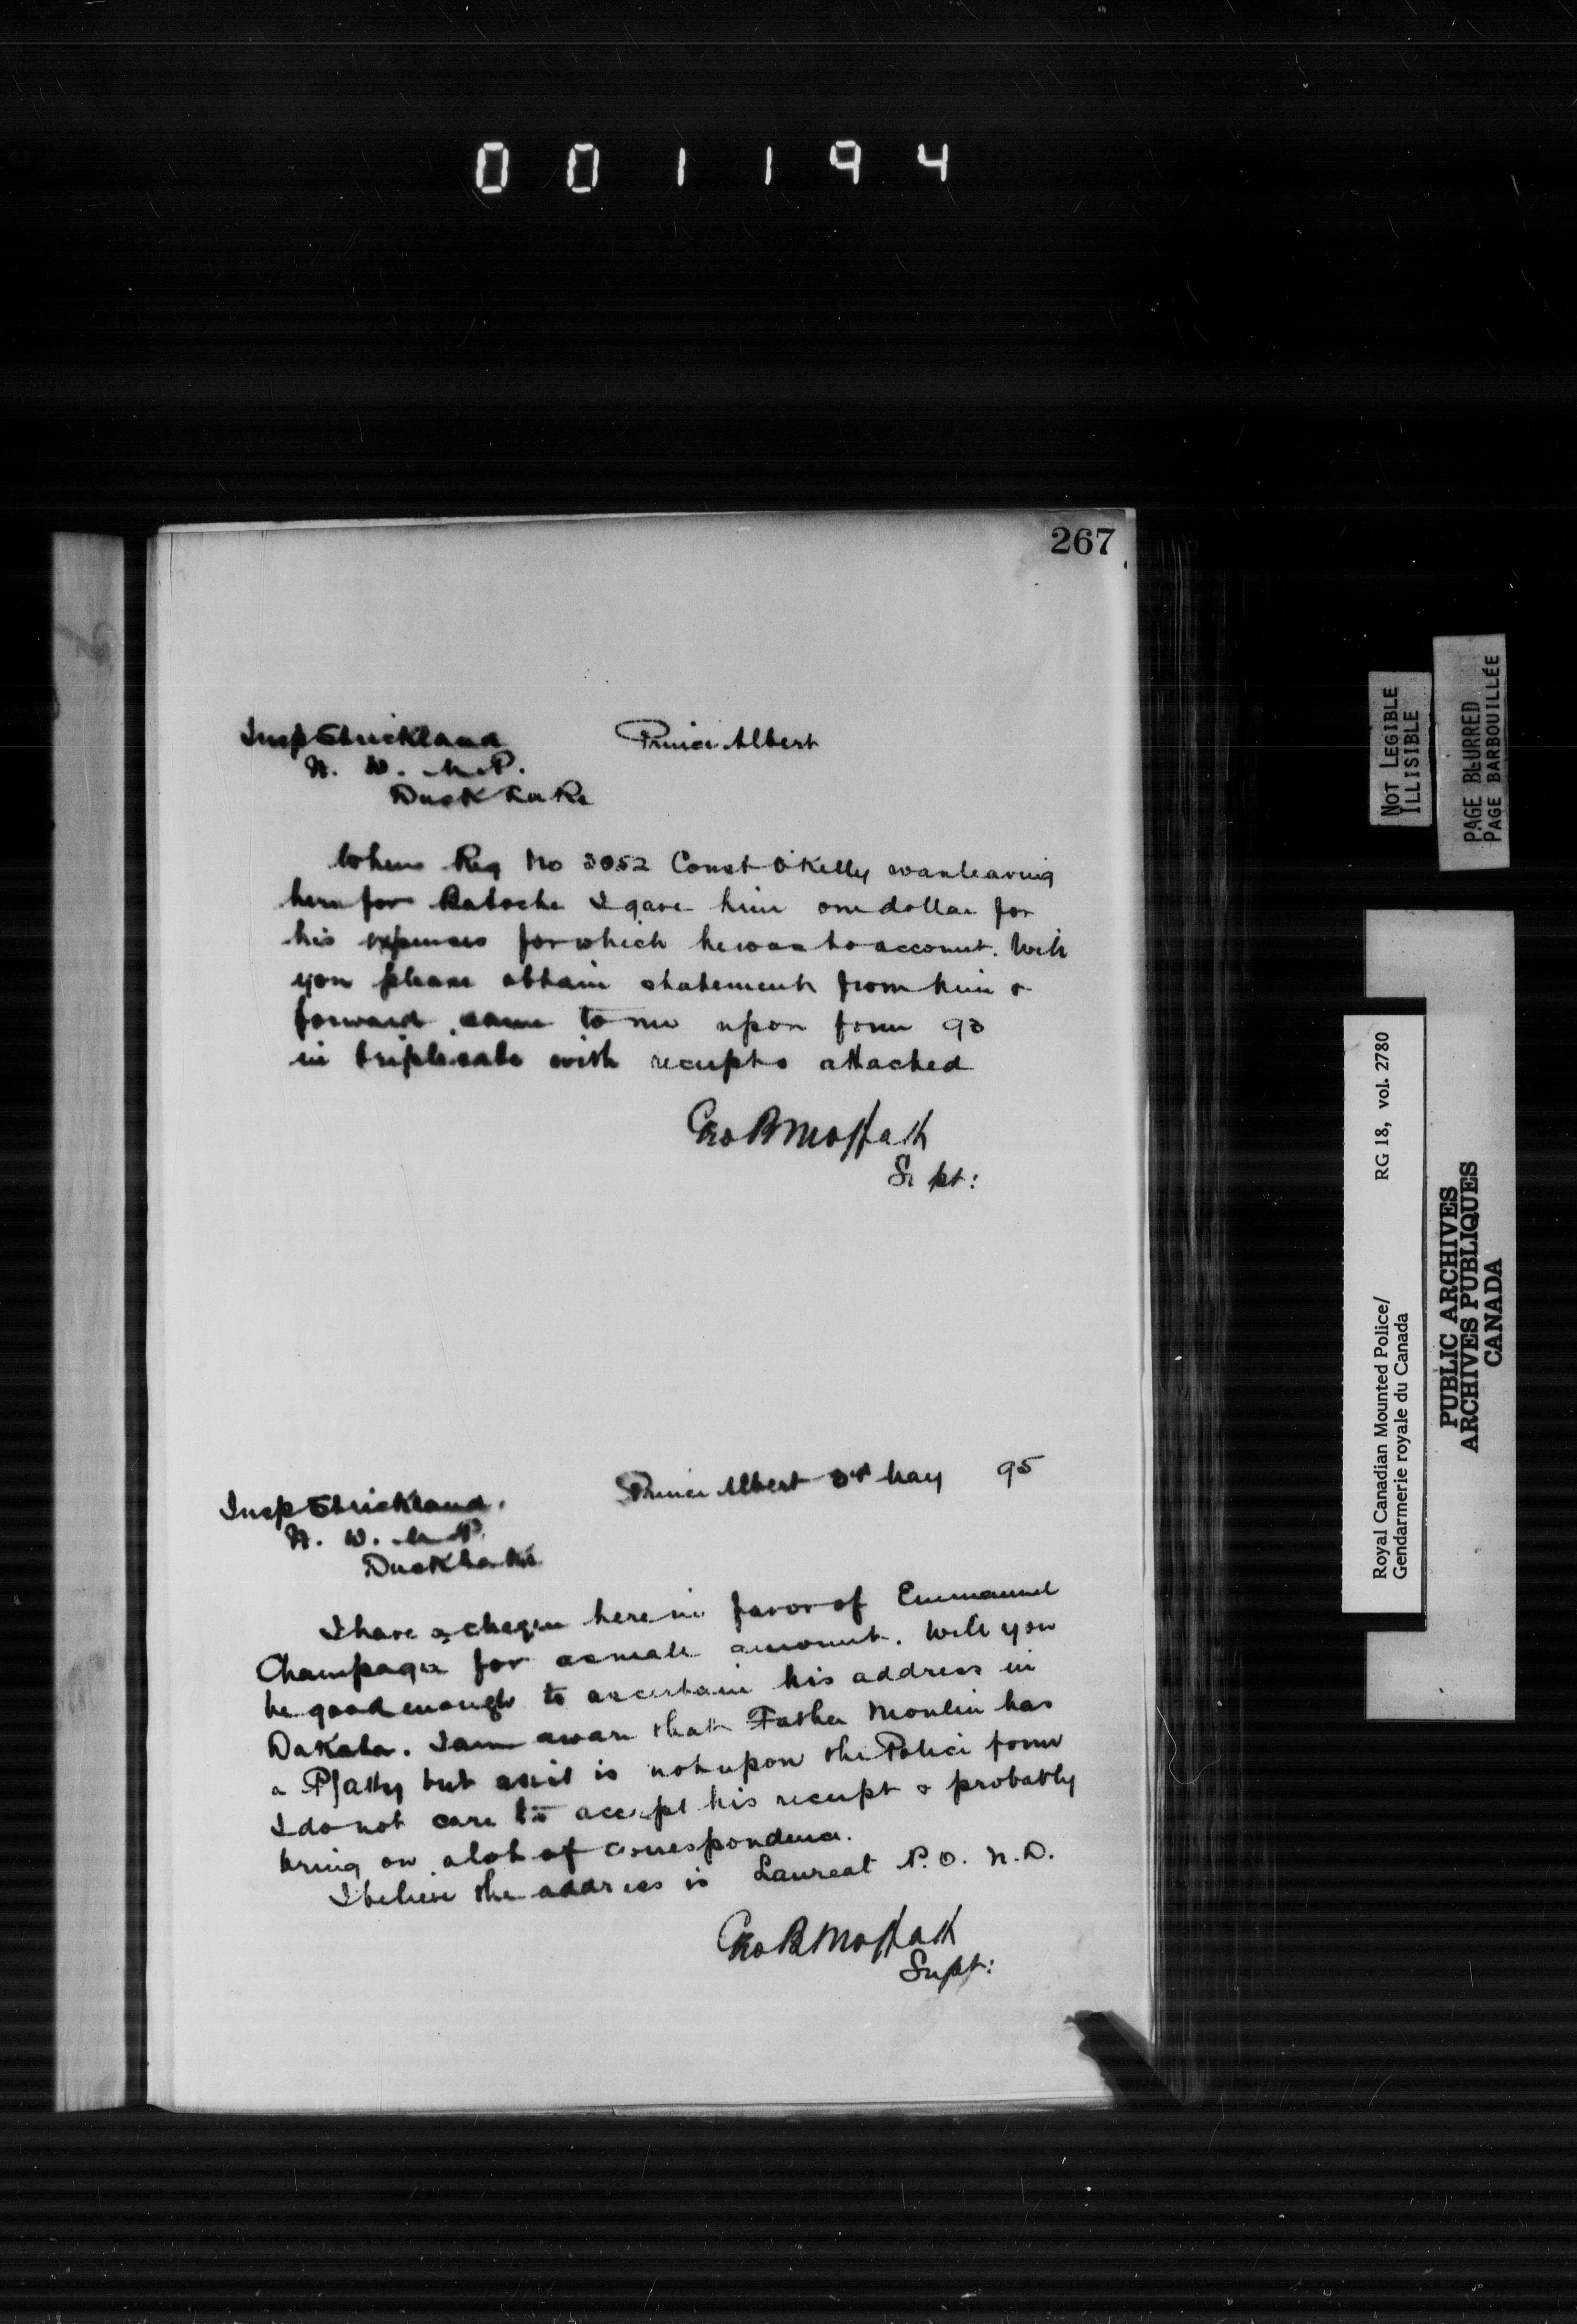 001194
267
Insp Strickland Prince Albert
N. W. M. P.
Duck Lake
When Reg No 3052 Const O'Kelly was leaving
here for Batoche I gave him one dollar for
his expenses for which he was to account. Will
you please obtain statement from him &
forward same to me upon form 90
in triplicate with receipts attached
Geo B Moffatt
Supt:
Insp Strickland. Prince Albert 3rd May 95
N. W. M. P.
Duck Lake
I have a cheque here in favor of Emmanuel
Champagne for a small amount. Will you
be good enough to ascertain his address in
Dakota. I am aware that Father Moulin has
a P/atty but as it is not upon the Police form
I do not care to accept his receipt & probably
bring on a lot of correspondence.
I believe the address is Laureat P. O. N. D.
Geo B Moffatt
Supt:
NOT LEGIBLE
ILLISIBLE
PAGE BLURRED
PAGE BARBOUILLÉE
Royal Canadian Mounted Police/ RG 18, vol. 2780
Gendarmerie royale du Canada
PUBLIC ARCHIVES
ARCHIVES PUBLIQUES
CANADA